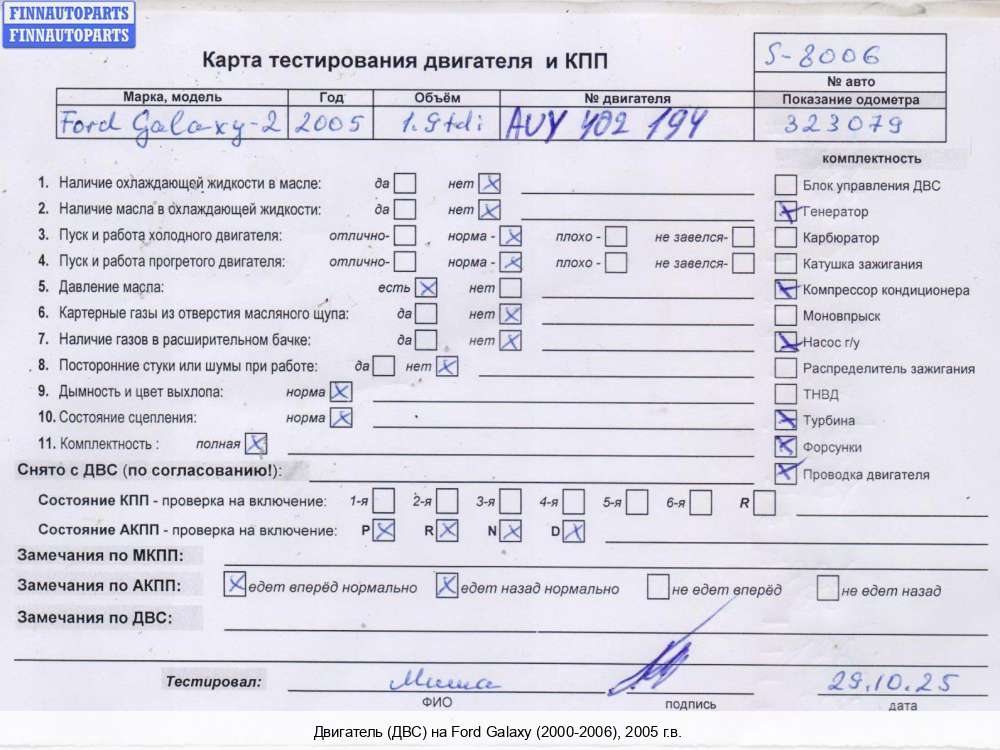 FINNAUTOPARTS
FINNAUTOPARTS
Карта тестирования двигателя и КПП
S-8006
№ авто
Марка, модель Год Объём № двигателя Показание одометра
Ford Galaxy-2 2005 1.9tdi AUY 402 194 323079
комплектность
1. Наличие охлаждающей жидкости в масле: да нет
Блок управления ДВС
2. Наличие масла в охлаждающей жидкости: да нет
Генератор
3. Пуск и работа холодного двигателя: отлично- норма - плохо - не завелся-
Карбюратор
4. Пуск и работа прогретого двигателя: отлично- норма - плохо - не завелся-
Катушка зажигания
5. Давление масла: есть нет
Компрессор кондиционера
6. Картерные газы из отверстия масляного щупа: да нет
Моновпрыск
7. Наличие газов в расширительном бачке: да нет
Насос г/у
8. Посторонние стуки или шумы при работе: да нет
Распределитель зажигания
9. Дымность и цвет выхлопа: норма
ТНВД
10. Состояние сцепления: норма
Турбина
11. Комплектность : полная
Форсунки
Снято с ДВС (по согласованию!):
Проводка двигателя
Состояние КПП - проверка на включение: 1-я 2-я 3-я 4-я 5-я 6-я R
Состояние АКПП - проверка на включение: P R N D
Замечания по МКПП:
Замечания по АКПП: едет вперёд нормально едет назад нормально не едет вперёд не едет назад
Замечания по ДВС:
Тестировал: Миша 29.10.25
ФИО подпись дата
Двигатель (ДВС) на Ford Galaxy (2000-2006), 2005 г.в.